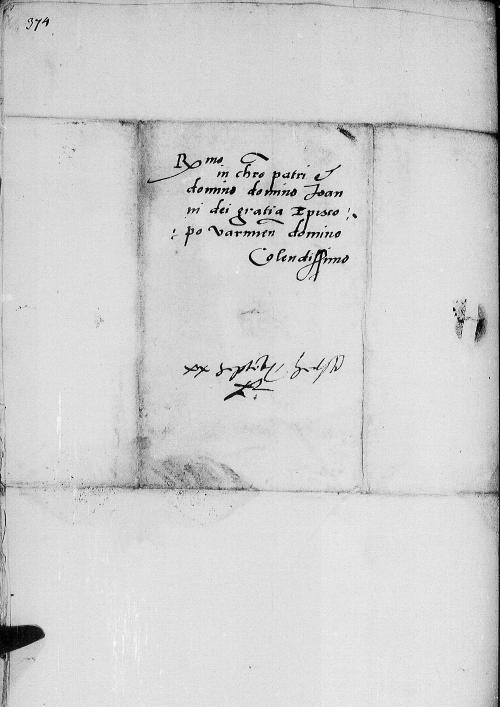 374
Rmo
in chro patri et
domino domino Joan
ni dei gratia Episco:
:po Varmien domino
Colendissimo
xx Septeb